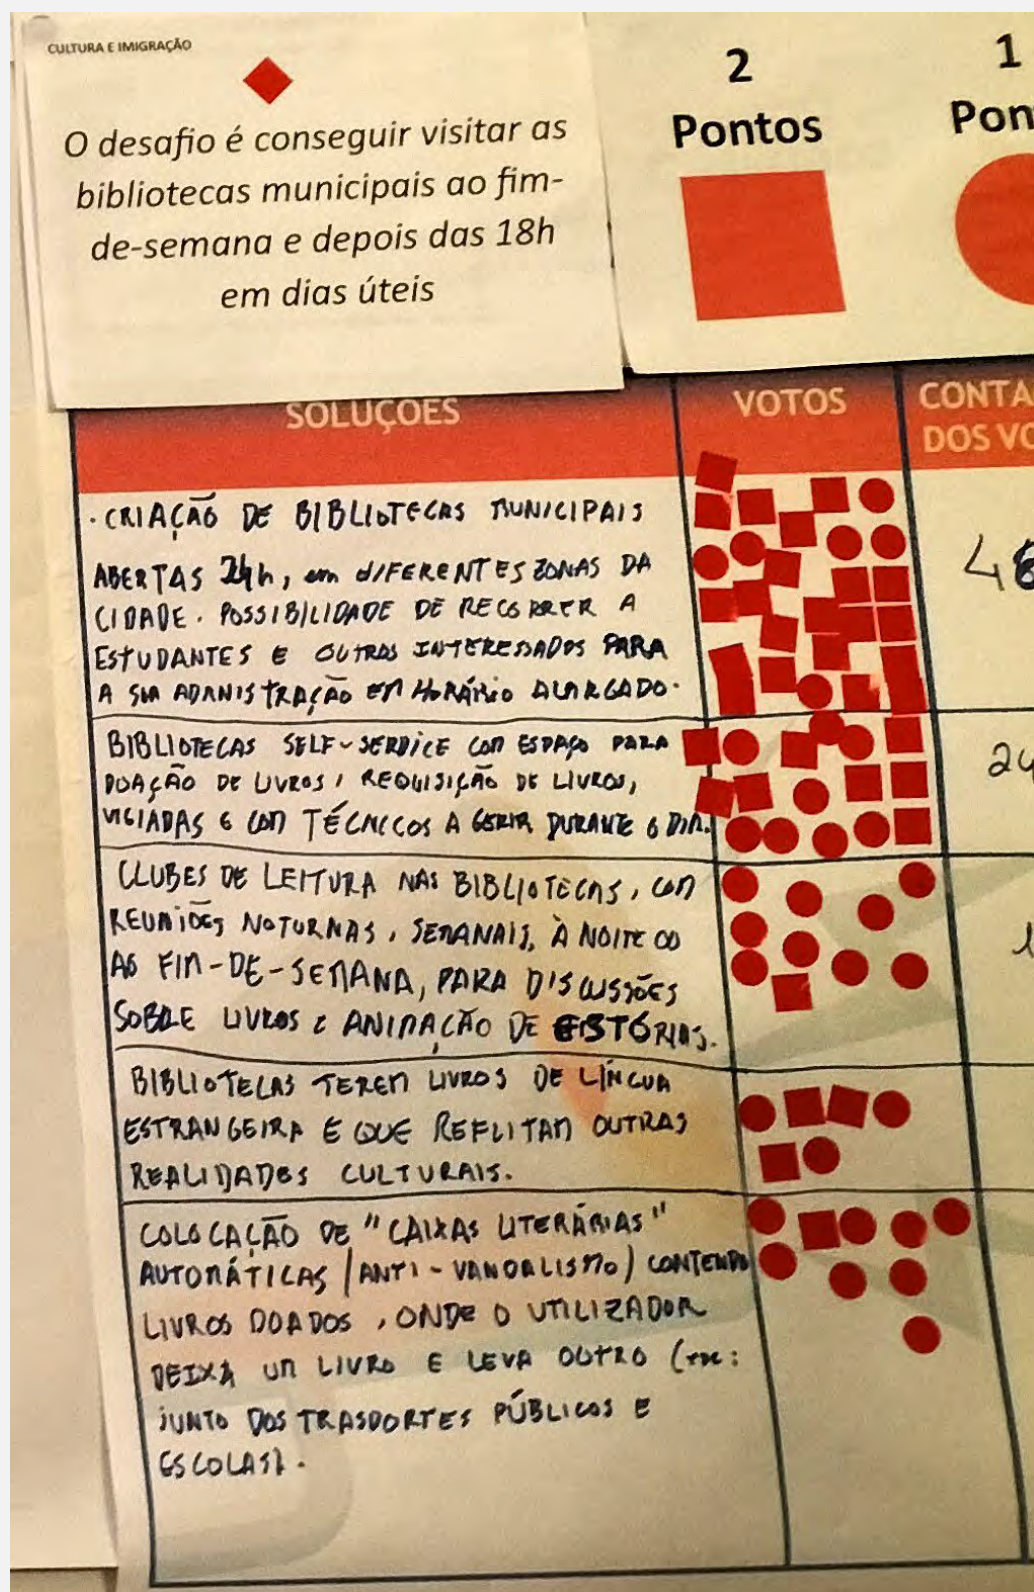 CULTURA E IMIGRAÇÃO
O desafio é conseguir visitar as
bibliotecas municipais ao fim-
de-semana e depois das 18h
em dias úteis
2
Pontos
1
Pon
SOLUÇÕES
VOTOS
CONTA
DOS VO
· CRIAÇÃO DE BIBLIOTECAS MUNICIPAIS
ABERTAS 24h, em diFERENTES ZONAS DA
CIDADE. POSSIBILIDADE DE RECORRER A
ESTUDANTES E OUTROS INTERESSADOS PARA
A SUA ADMNISTRAÇÃO EM HORÁRIO ALARGADO.
BIBLIOTECAS SELF-SERVICE COM ESPAÇO PARA
DOAÇÃO DE LIVROS / REQUISIÇÃO DE LIVROS,
VIGIADAS E COM TÉCNICOS A GERIR DURANTE O DIA.
24
CLUBES DE LEITURA NAS BIBLIOTECAS, COM
REUNIÕES NOTURNAS, SEMANAIS, À NOITE OU
AO FIM-DE-SEMANA, PARA DISCUSSÕES
SOBRE LIVROS E ANIMAÇÃO DE ESTÓRIAS.
1
BIBLIOTECAS TEREM LIVROS DE LÍNGUA
ESTRANGEIRA E QUE REFLITAM OUTRAS
REALIDADES CULTURAIS.
COLOCAÇÃO DE "CAIXAS LITERÁRIAS"
AUTOMÁTICAS (ANTI-VANDALISMO) CONTENDO
LIVROS DOADOS, ONDE O UTILIZADOR
DEIXA UM LIVRO E LEVA OUTRO
JUNTO DOS TRASPORTES PÚBLICOS E
ESCOLAS).